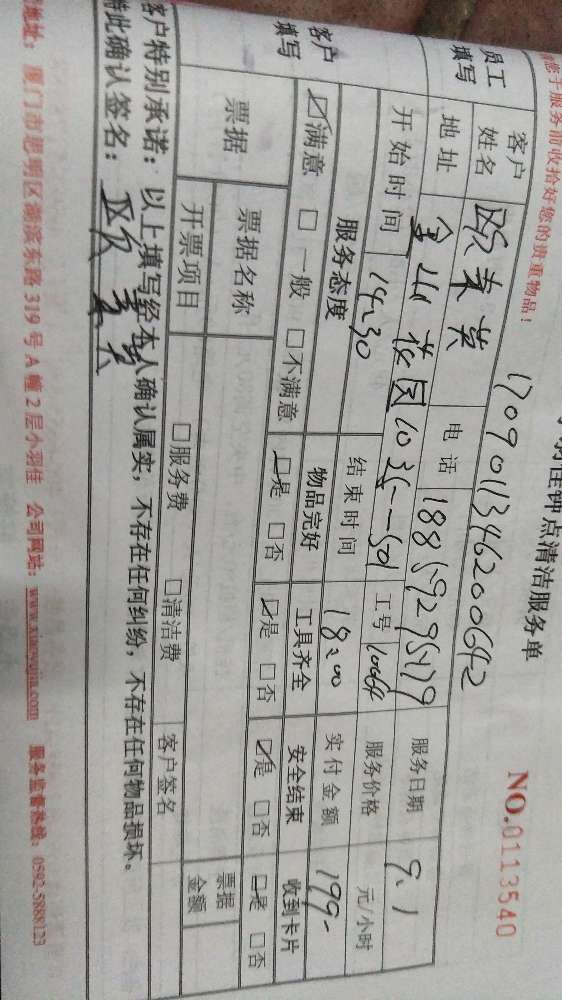 钟点清洁服务单
NO.0113540
您于服务前收拾好您的贵重物品！
1709011346200642
员工填写 客户姓名 欧素英 电话 18859295179 服务日期 9.1
地址 金山花园103 501 工号 10064 服务价格 元/小时
开始时间 14:30 结束时间 18:00 实付金额 199-
客户填写 服务态度 物品完好 工具齐全 安全结束 收到卡片
☑满意 □一般 □不满意 ☑是 □否 ☑是 □否 ☑是 □否 ☑是 □否
票据 票据名称 票据金额
开票项目 □服务费 □清洁费 客户签名
客户特别承诺：以上填写经本人确认属实，不存在任何纠纷，不存在任何物品损坏。
特此确认签名：欧素英
地址：厦门市思明区湖滨东路319号A幢2层小羽佳 公司网站：www.xiaoyujia.com 服务监督热线：0592-5888123